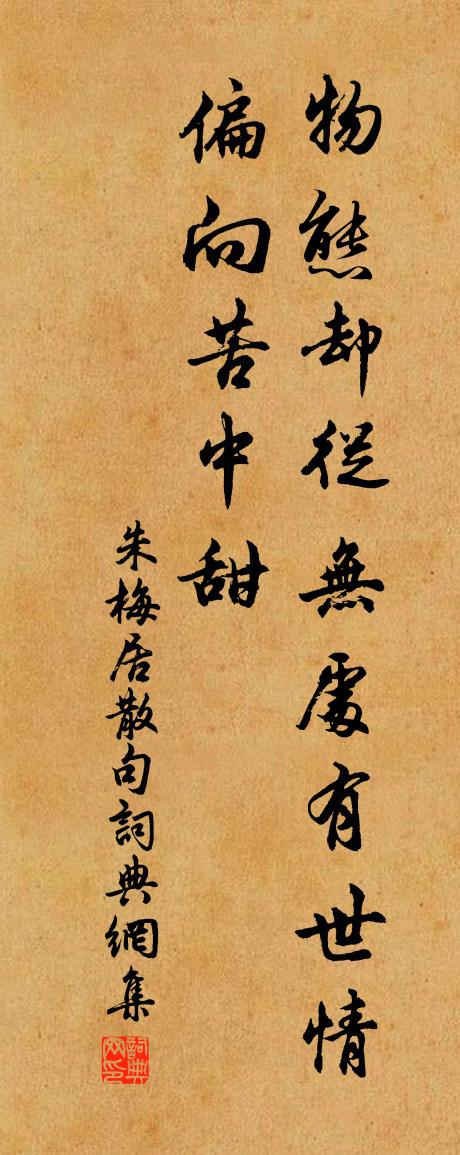 物態却從無處有世情
偏向苦中甜
朱梅居散句詞典網集
詞典
網印